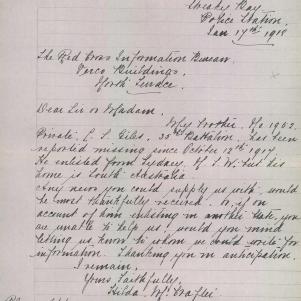 Streaky Bay,
Police Station.
Jan 17th 1918
The Red Cross Information Bureau
Verco Buildings,
North Terrace
Dear Sir or Madam.
My Brother No 1902
Private C. S. Giles. Battalion. has been
reported missing since October 12th 1917.
He enlisted from Sydney N.S.W. but his
home is South Australia
Any news you could supply us with would
be most thankfully received. Or if on
account of him enlisting in another state, you
are unable to help us! would you mind
letting us know to whom we could write for
information. Thanking you in anticipation.
I remain,
Yours Faithfully,
Hilda M.